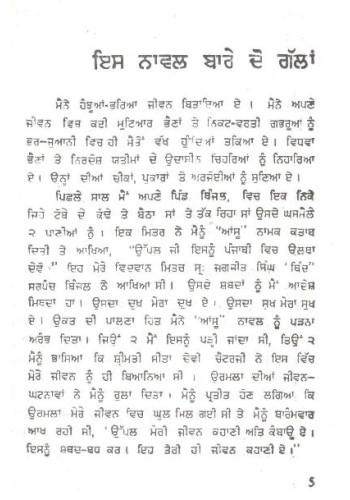 ਇਸ ਨਾਵਲ ਬਾਰੇ ਦੋ ਗੱਲਾਂ
ਮੈਨੇ ਹੰਝੂਆਂ-ਭਰਿਆ ਜੀਵਨ ਬਿਤਾਇਆ ਏ। ਮੈਨੇ ਅਪਣੇ
ਜੀਵਨ ਵਿਚ ਕਈ ਮੁਟਿਆਰ ਭੈਣਾਂ ਤੇ ਨਿਕਟ-ਵਰਤੀ ਗਭਰੂਆਂ ਨੂੰ
ਭਰ-ਜੁਆਨੀ ਵਿਚ ਹੀ ਮੈਤੋਂ ਵੱਖ ਹੁੰਦਿਆਂ ਤਕਿਆ ਏ। ਵਿਧਵਾ
ਭੈਣਾਂ ਤੇ ਨਿਰਦੋਸ਼ ਯਤੀਮਾਂ ਦੇ ਉਦਾਸੀਨ ਚਿਹਰਿਆਂ ਨੂੰ ਨਿਹਾਰਿਆ
ਏ। ਉਨ੍ਹਾਂ ਦੀਆਂ ਚੀਕਾਂ, ਪੁਕਾਰਾਂ ਤੇ ਅਰਜੋਈਆਂ ਨੂੰ ਸੁਣਿਆ ਏ।
ਪਿਛਲੇ ਸਾਲ ਮੈਂ ਅਪਣੇ ਪਿੰਡ ਬਿੰਜਲ, ਵਿਚ ਇਕ ਨਿਕੇ
ਜਿਹੇ ਟੋਬੇ ਦੇ ਕੰਢੇ ਤੇ ਬੈਠਾ ਸਾਂ ਤੇ ਤੱਕ ਰਿਹਾ ਸਾਂ ਉਸਦੇ ਘਸਮੈਲੇ
੨ ਪਾਣੀਆਂ ਨੂੰ। ਇਕ ਮਿਤਰ ਨੇ ਮੈਨੂੰ "ਆਂਸੂ" ਨਾਮਕ ਕਤਾਬ
ਦਿਤੀ ਤੇ ਆਖਿਆ, "ਉੱਪਲ ਜੀ ਇਸਨੂੰ ਪੰਜਾਬੀ ਵਿਚ ਉਲਥਾ
ਦੇਵੋ।" ਇਹ ਮੇਰੇ ਵਿਦਵਾਨ ਮਿਤਰ ਸ੍ਰ: ਜਗਜੀਤ ਸਿੰਘ "ਬਿੰਦ"
ਸਰਪੰਚ ਬਿੰਜਲ ਨੇ ਆਖਿਆ ਸੀ। ਉਸਦੇ ਸ਼ਬਦਾਂ ਨੂੰ ਮੈਂ ਆਦੇਸ਼
ਮਿਥਦਾ ਹਾਂ। ਉਸਦਾ ਦੁਖ ਮੇਰਾ ਦੁਖ ਏ। ਉਸਦਾ ਸੁਖ ਮੇਰਾ ਸੁਖ
ਏ। ਉਕਤ ਦੀ ਪਾਲਣਾ ਹਿਤ ਮੈਨੇ "ਆਂਸੂ" ਨਾਵਲ ਨੂੰ ਪੜਨਾ
ਅਰੰਭ ਦਿਤਾ। ਜਿਉਂ ੨ ਮੈਂ ਇਸਨੂੰ ਪੜ੍ਹੀ ਜਾਂਦਾ ਸੀ, ਤਿਉਂ ੨
ਮੈਨੂੰ ਭਾਸਿਆ ਕਿ ਸ਼੍ਰੀਮਤੀ ਸੀਤਾ ਦੇਵੀ ਚੈਟਰਜੀ ਨੇ ਇਸ ਵਿੱਚ
ਮੇਰੇ ਜੀਵਨ ਨੂੰ ਹੀ ਬਿਆਨਿਆ ਸੀ। ਉਰਮਲਾ ਦੀਆਂ ਜੀਵਨ-
ਘਟਨਾਵਾਂ ਨੇ ਮੈਨੂੰ ਰੁਲਾ ਦਿਤਾ। ਮੈਨੂੰ ਪ੍ਰਤੀਤ ਹੋਣ ਲਗਿਆ ਕਿ
ਉਰਮਲਾ ਮੇਰੇ ਜੀਵਨ ਵਿਚ ਘੁਲ ਮਿਲ ਗਈ ਸੀ ਤੇ ਮੈਨੂੰ ਬਾਰੰਮਵਾਰ
ਆਖ ਰਹੀ ਸੀ, 'ਉੱਪਲ ਮੇਰੀ ਜੀਵਨ ਕਹਾਣੀ ਅਤਿ ਕੰਬਾਊ ਏ।
ਇਸਨੂੰ ਸ਼ਬਦ-ਬਧ ਕਰ। ਇਹ ਤੈਰੀ ਹੀ ਜੀਵਨ ਕਹਾਣੀ ਏ।
5